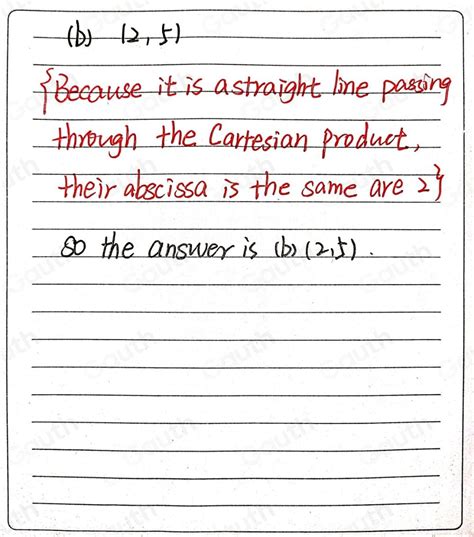 (b) (2,5)
{Because it is a straight line passing
through the Cartesian product,
their abscissa is the same are 2}
so the answer is (b) (2,5).